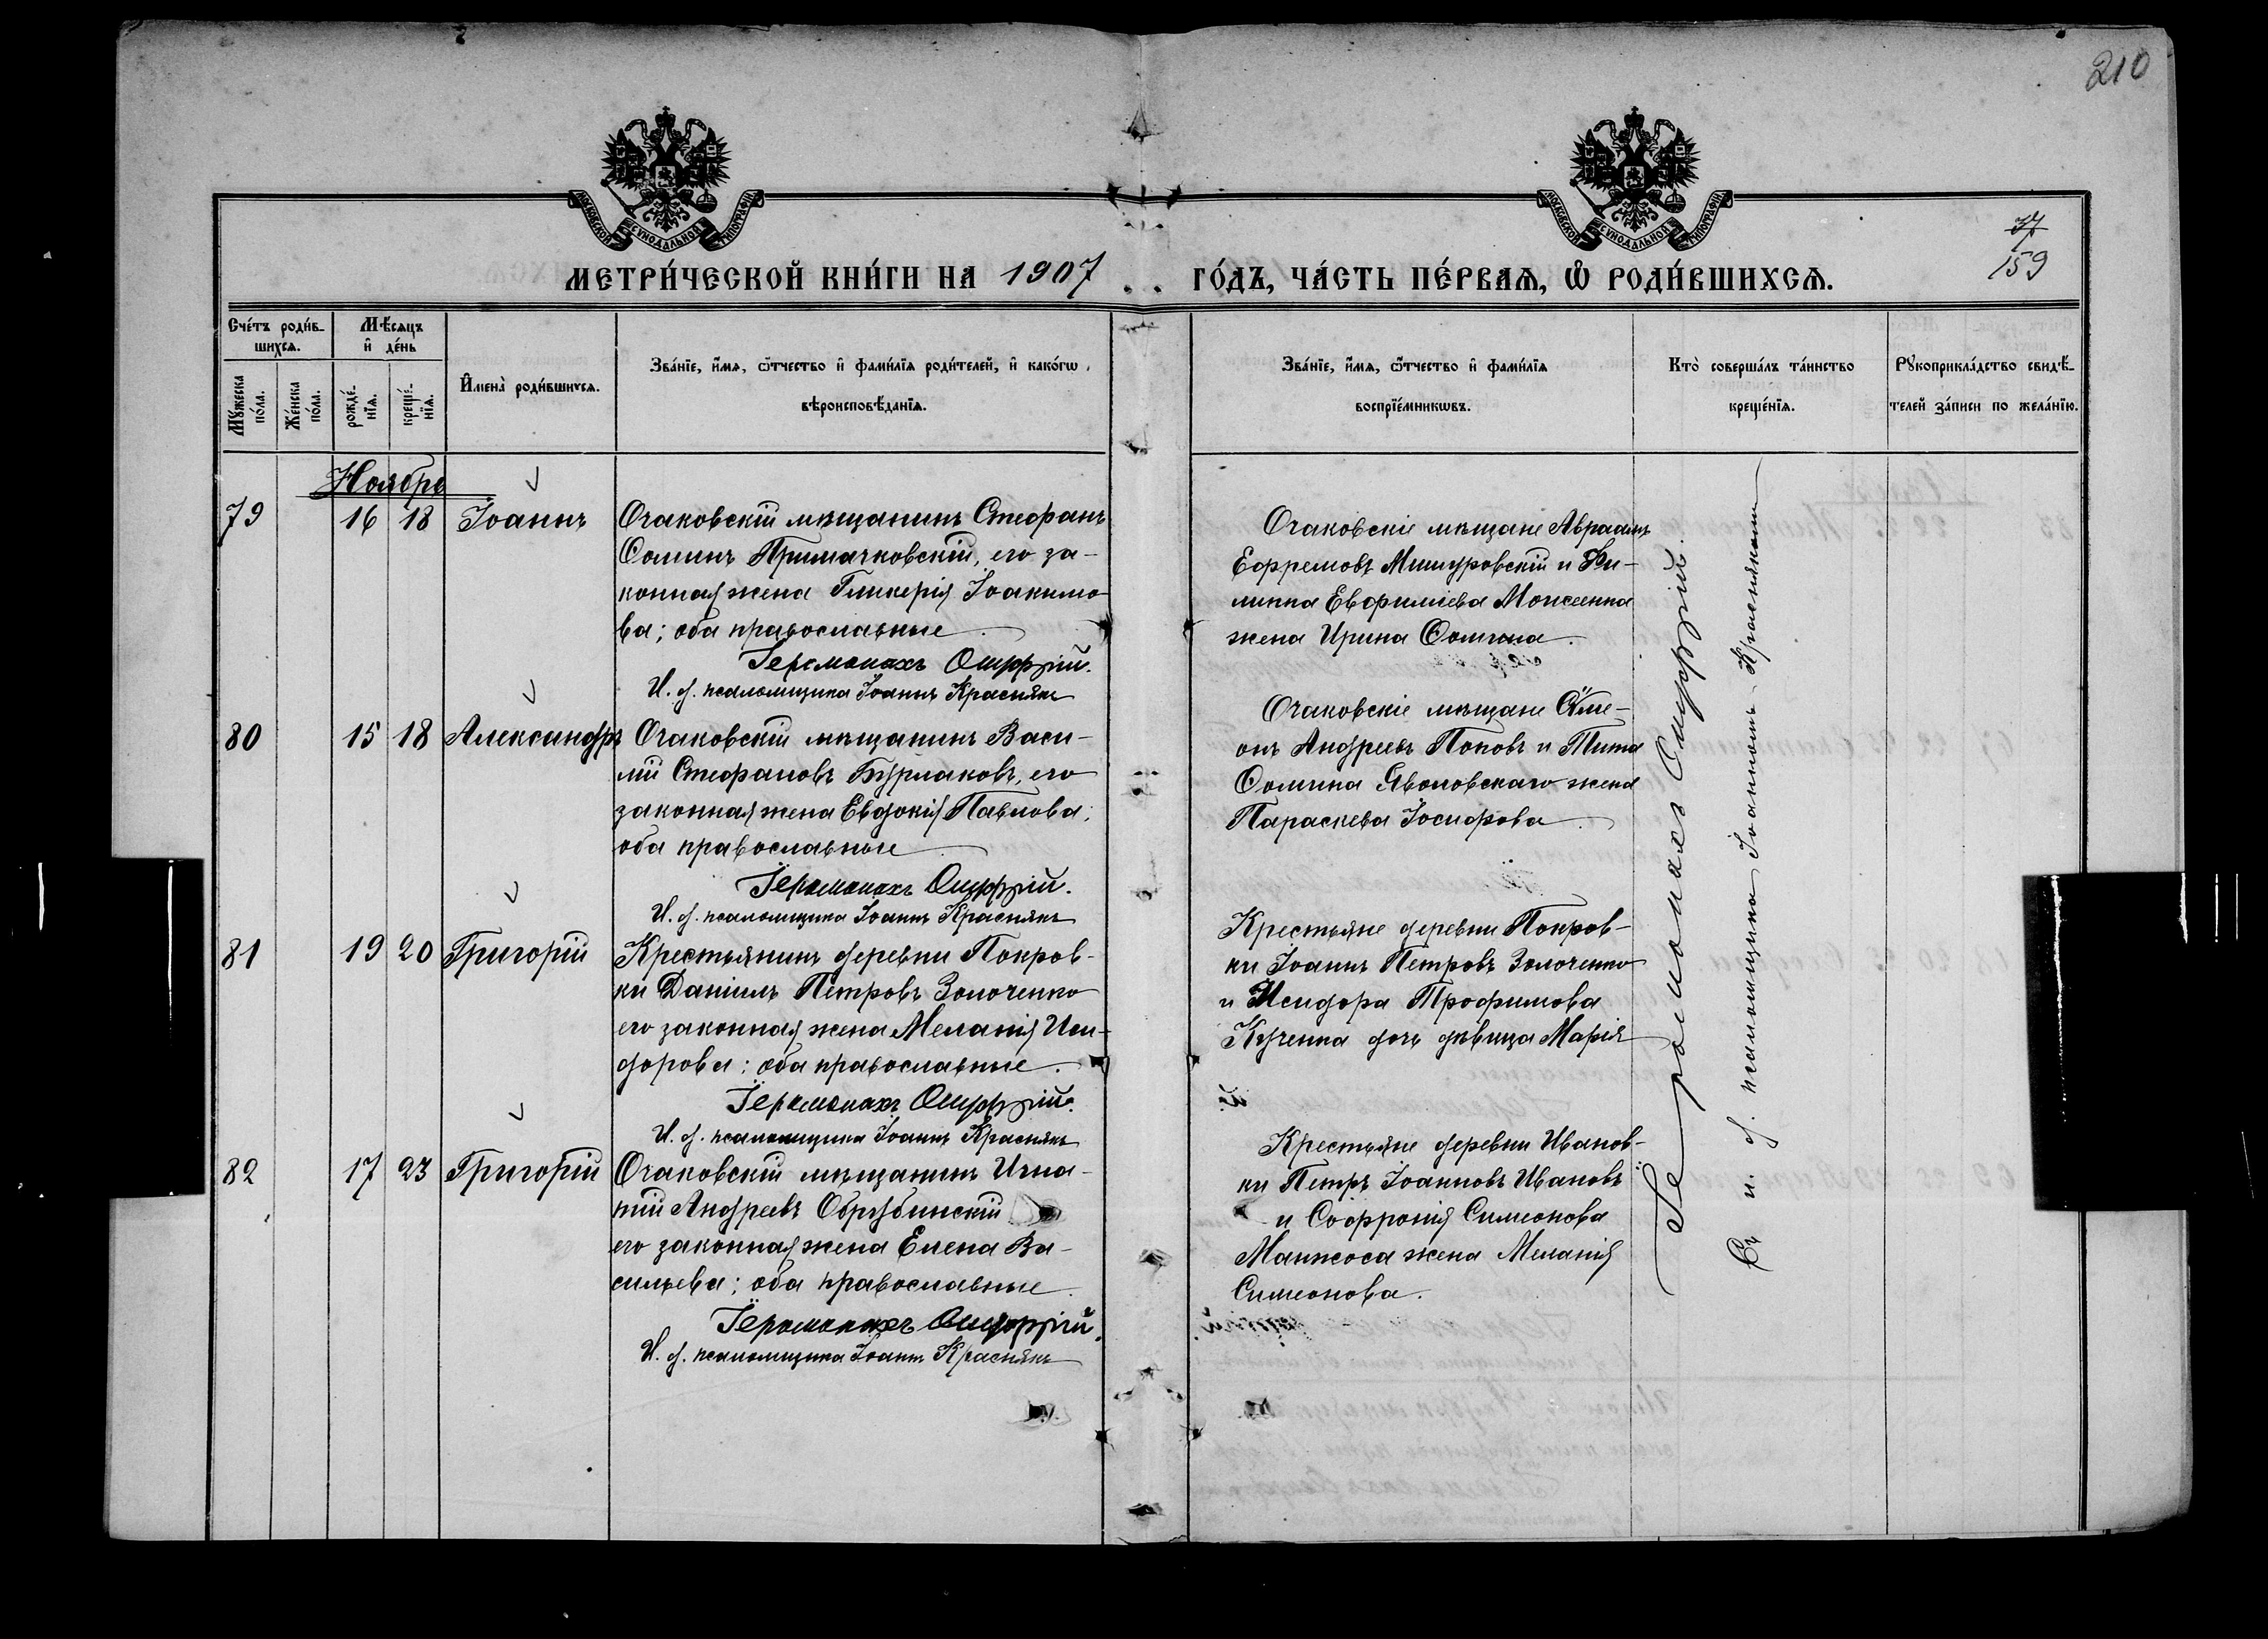 210
МОСКОВСКОЙ СѴНОДАЛЬНОЙ ТИПОГРАФІИ
МОСКОВСКОЙ СѴНОДАЛЬНОЙ ТИПОГРАФІИ
37
159
МЕТРИ́ЧЕСКОЙ КНИ́ГИ НА 1907 ГО́ДЪ, ЧА́СТЬ ПЕ́РВАѦ, Ѽ РОДИ́ВШИХСѦ.
Сче́тъ роди́в-
шихсѧ.
Мꙋ́жеска
по́ла.
Же́нска
по́ла.
Мѣ́сѧцъ
и҆ де́нь
рожде́-
нїѧ.
креще́-
нїѧ.
И҆мена̀ роди́вшихсѧ.
Зва́нїе, и҆́мѧ, ѿ́тчество и҆ фами́лїѧ роди́телей, и҆ како́гѡ
вѣроисповѣ́данїѧ.
Зва́нїе, и҆́мѧ, ѿ́тчество и҆ фами́лїѧ
воспрїе́мникѡвъ.
Кто̀ соверша́лъ та́инство
креще́нїѧ.
Рꙋкоприкла́дство свидѣ́-
телей за́писи по жела́нїю.
Ноябрь
79 16 18 Іоаннъ
Очаковскій мѣщанинъ Стефанъ
Ѳоминъ Примачковскій, его за-
конная жена Гликерія Іоакимо-
ва; оба православные
Іеромонахъ Онуфрій.
И. д. псаломщика Іоаннъ Краснякъ
Очаковскіе мѣщане Авраамъ
Ефремовъ Мишуровскій и Фи-
липпа Евфиміева Моисеенка
жена Ирина Ѳомина.
80 15 18 Александръ
Очаковскій мѣщанинъ Васи-
лій Стефановъ Бурлаковъ, его
законная жена Евдокія Павлова;
оба православные
Іеромонахъ Онуфрій.
И. д. псаломщика Іоаннъ Краснякъ
Очаковскіе мѣщане Сѵме-
онъ Андреевъ Поповъ и Тита
Ѳомина Яволовскаго жена
Параскева Іосифова
81 19 20 Григорій
Крестьянинъ деревни Покров-
ки Даніилъ Петровъ Золоченко
его законная жена Меланія Иси-
дорова; оба православные.
Іеромонахъ Онуфрій.
И. д. псаломщика Іоаннъ Краснякъ
Крестьяне деревни Покров-
ки Іоаннъ Петровъ Золоченко
и Исидора Трофимова
Кученка дочь дѣвица Марія
82 17 23 Григорій
Очаковскій мѣщанинъ Игна-
тій Андреевъ Обрубинскій
его законная жена Елена Ва-
сильева; оба православные
Іеромонахъ Онуфрій.
И. д. псаломщика Іоаннъ Краснякъ
Крестьяне деревни Иванов-
ки Петръ Іоанновъ Ивановъ
и Софронія Симеонова
Манжоса жена Меланія
Симеонова.
Іеромонахъ Онуфрій.
Съ и. д. псаломщика Іоанномъ Краснякомъ